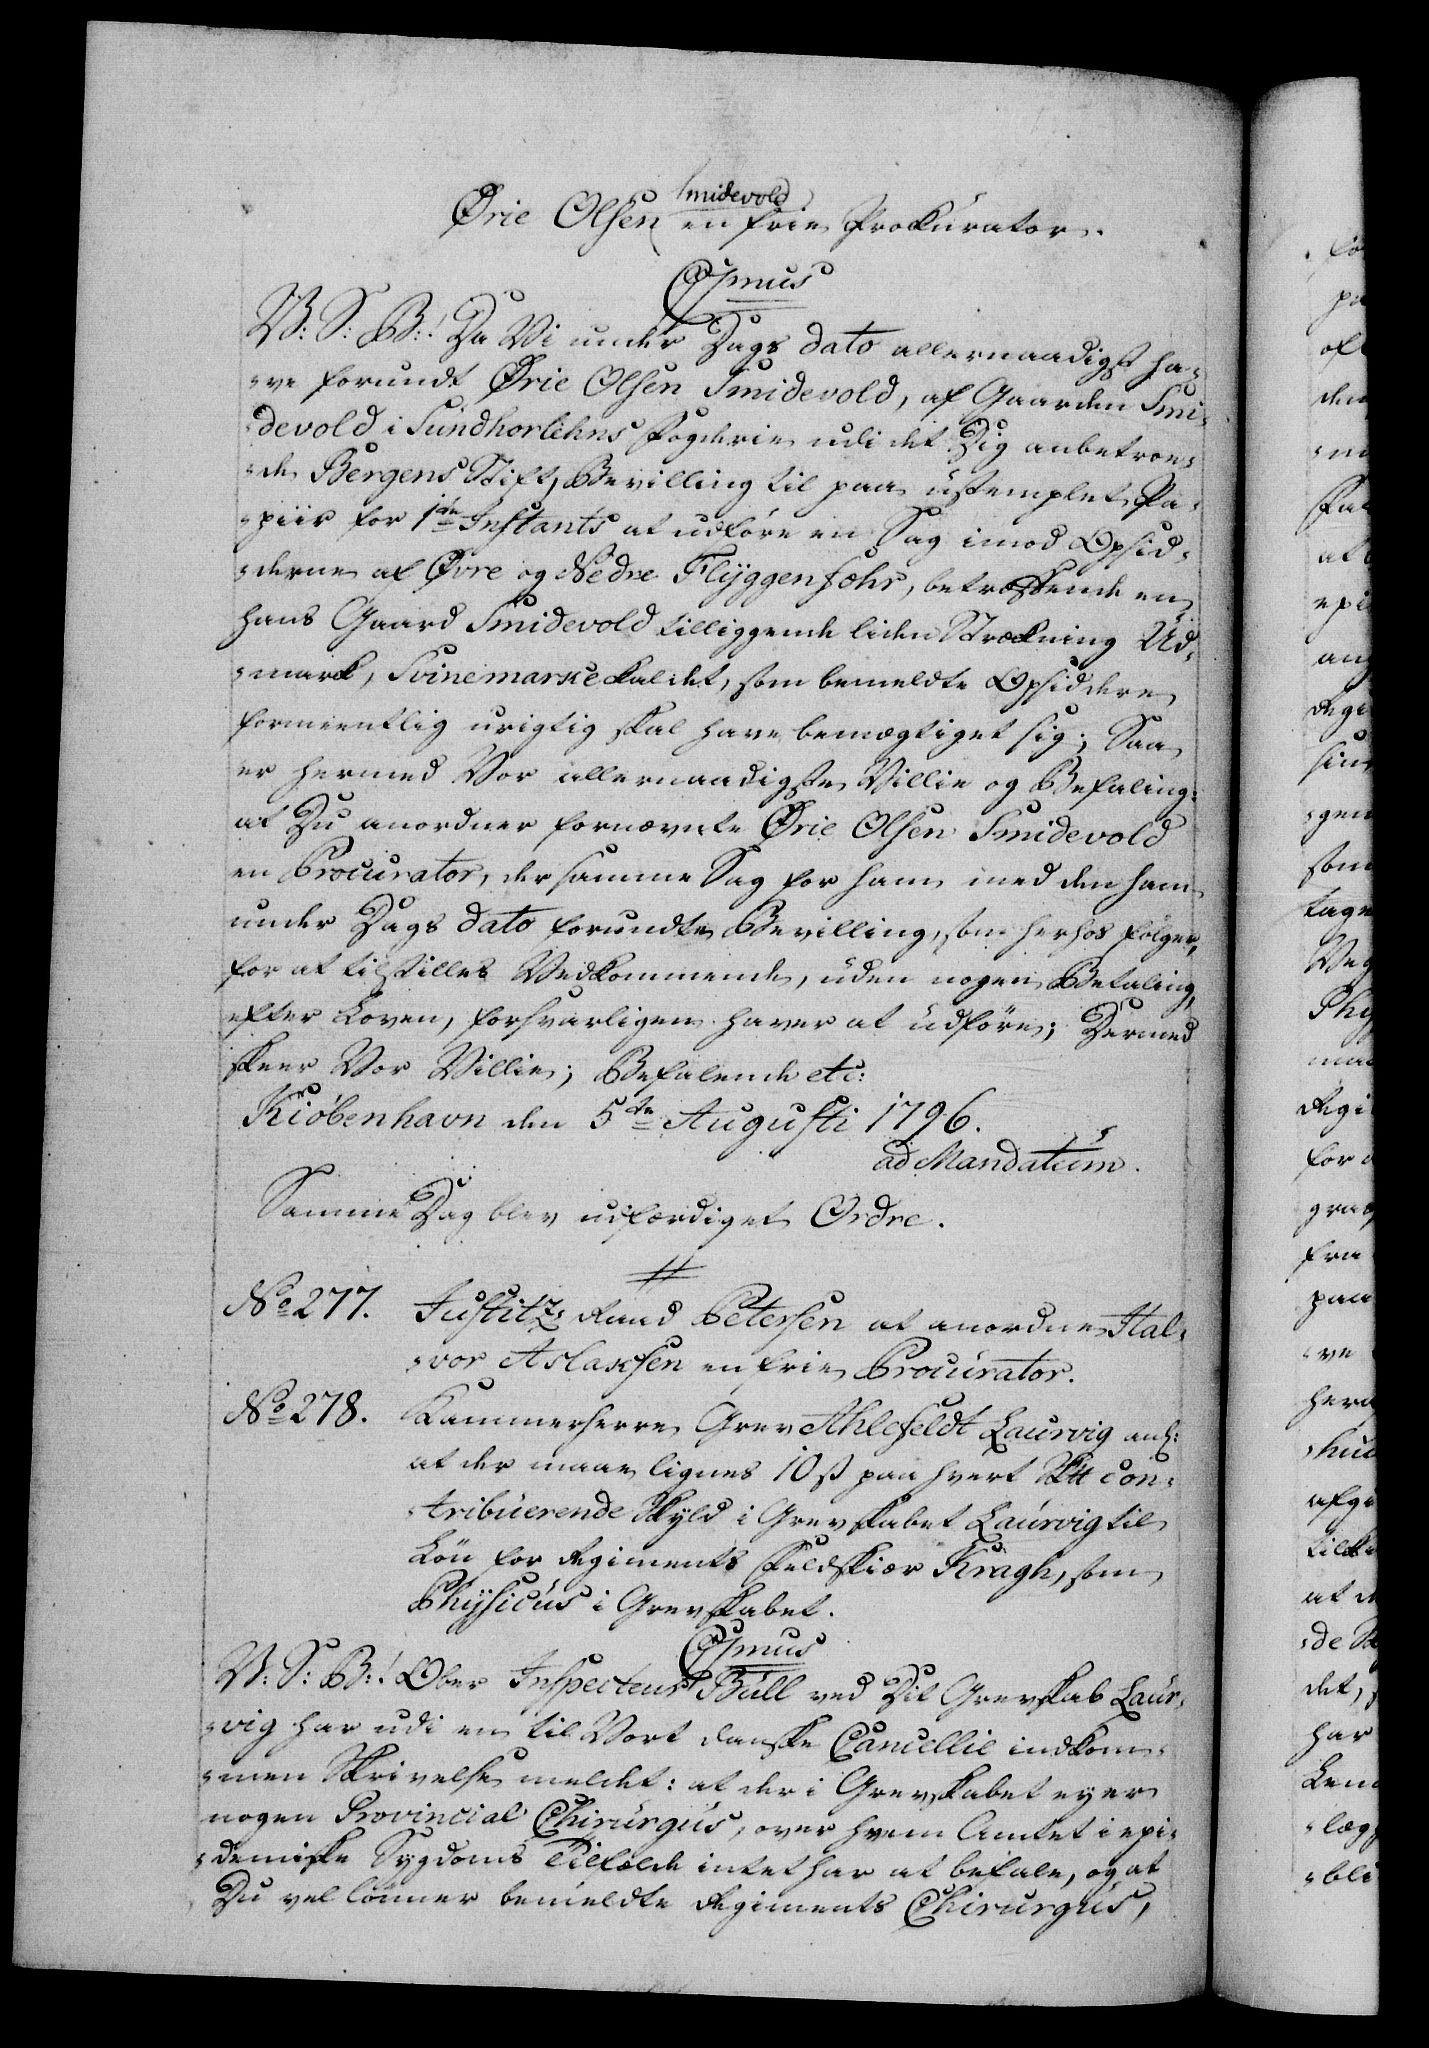 Smidevold
Ørie Olsen en frie Prokurator.
CJmus
V: S: B:! Da Vi under Dags dato allernaadigst ha-
-ve forundt Ørie Olsen Smidevold, af Gaarden Smi-
-devold i Sundhorlehns Fogderie udi det Dig anbetroe-
-de Bergens Stift, Bevilling til paa ustemplet Pa-
-piir for 1ste Instants at udføre en Sag imod Opsid-
-derne af Øvre og Nedre Flyggensøhr, betræffende en
hans Gaard Smidevold tilliggende liden Strækning Ud-
-mark, Svinemarke kaldet, som bemeldte Opsiddere
formeentlig urigtig skal have bemægtiget sig; Saa
er hermed Vor allernaadigste Villie og Befaling:
at Du anordner fornævnte Ørie Olsen Smidevold
en Procurator, der samme Sag for ham med den ham
under Dags dato forundte Bevilling, som herhos følger,
for at tilstilles Vedkommende, uden nogen Betaling,
efter Loven, forsvarligen haver at udføre; Dermed
skeer Vor Villie; Befalende etc:
Kiøbenhavn den 5te Augusti 1796.
ad Mandatum.
Samme Dag blev udfærdiget Ordre.
No 277. Justitz Raad Petersen at anordne Hal-
-vor Aslaksen en frie Procurator.
No 278. Kammerherre Grev Ahlefeldt Laurvig anl:
at der maae lignes 10 ß paa hvert con-
-tribuerende Skyld i Grevskabet Laurvig til
Løn for Regiments Feldskiær Kragh, som
Physicus i Grevskabet.
CJmus
V: S: B:! Ober Inspecteur Bull ved Dit Grevskab Laur-
-vig har udi en til Vort danske Cancellie indkom-
-men Skrivelse meldet: at der i Grevskabet ey er
nogen Provincial Chirurgus, over hvem Amtet i epi-
-demiske Sygdoms Tilfælde intet har at befale, og at
Du vel lønner bemeldte Regiments Chirurgus,